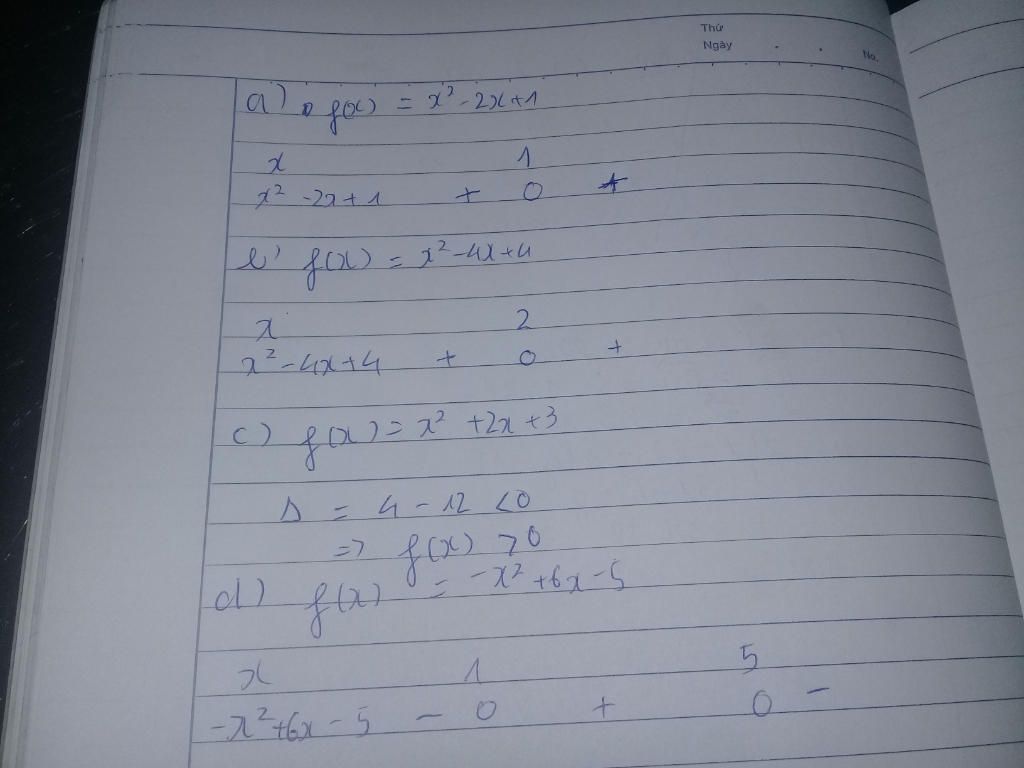 Thứ
Ngày . .
No.
a) f(x) = x² - 2x + 1
x 1
x² - 2x + 1 + 0 +
b) f(x) = x² - 4x + 4
x 2
x² - 4x + 4 + 0 +
c) f(x) = x² + 2x + 3
Δ = 4 - 12 < 0
=> f(x) > 0
d) f(x) = -x² + 6x - 5
x 1 5
-x² + 6x - 5 - 0 + 0 -